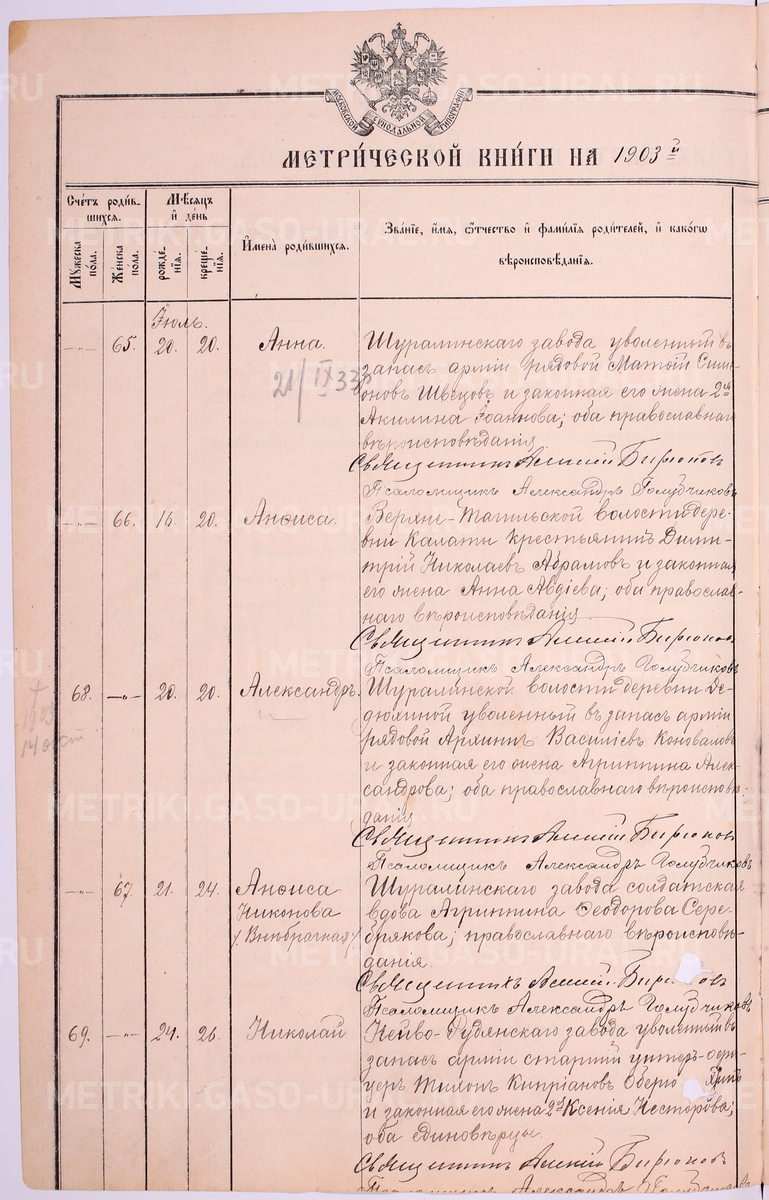 МОСКОВСКОЙ СѴНОДАЛЬНОЙ ТИПОГРАФІИ
МЕТРИ́ЧЕСКОЙ КНИ́ГИ НА 1903 й
Сче́тъ роди́в-
шихся.
Му́жеска по́ла.
Же́нска по́ла.
Мѣ́сяцъ
и҆ де́нь
рожде́-
нїя.
креще́-
нїя.
И҆мена̀ роди́вшихся.
Зва́нїе, и҆́мя, ѻ҆́тчество и҆ фами́лїя роди́телей, и҆ како́гѡ
вѣроисповѣ́данїя.
Іюль.
—„— 65. 20. 20. Анна.
Шуралинскаго завода уволенный въ
запасъ арміи рядовой Матѳій Сим-
оновъ Швецовъ и законная его жена 2ая
Акилина Іоаннова; оба православнаго
вѣроисповѣданія.
21/IX 33
Священникъ Алексій Бирюковъ
Псаломщикъ Александръ Голубчиковъ
—„— 66. 16. 20. Анѳиса.
Верхне-Тагильской волости дере-
вни Калаты крестьянинъ Дими-
трій Николаевъ Абрамовъ и законная
его жена Анна Авдіева; оба православ-
наго вѣроисповѣданія.
Священникъ Алексій Бирюковъ
Псаломщикъ Александръ Голубчиковъ
68. —„— 20. 20. Александръ.
Шуралинской волости деревни Де-
дюхиной уволенный въ запасъ арміи
рядовой Архиппъ Василіевъ Коноваловъ
и законная его жена Агриппина Алек-
сандрова; оба православнаго вѣроисповѣ-
данія
Священникъ Алексій Бирюковъ
Псаломщикъ Александръ Голубчиковъ
—„— 67. 21. 24. Анѳиса
Никонова
/Внѣбрачная/
Шуралинскаго завода солдатская
вдова Агриппина Ѳеодорова Сере-
брякова; православнаго вѣроисповѣ-
данія.
Священникъ Алексій Бирюковъ
Псаломщикъ Александръ Голубчиковъ
69. —„— 24. 26. Николай
Нейво-Рудянскаго завода уволенный въ
запасъ арміи старшій унтеръ-офи-
церъ Тихонъ Кипріановъ
и законная его жена 2я Ксенія Несторова;
оба единовѣрцы.
Священникъ Алексій Бирюковъ
Псаломщикъ Александръ Голубчиковъ
METRIKI.GASO-URAL.RU